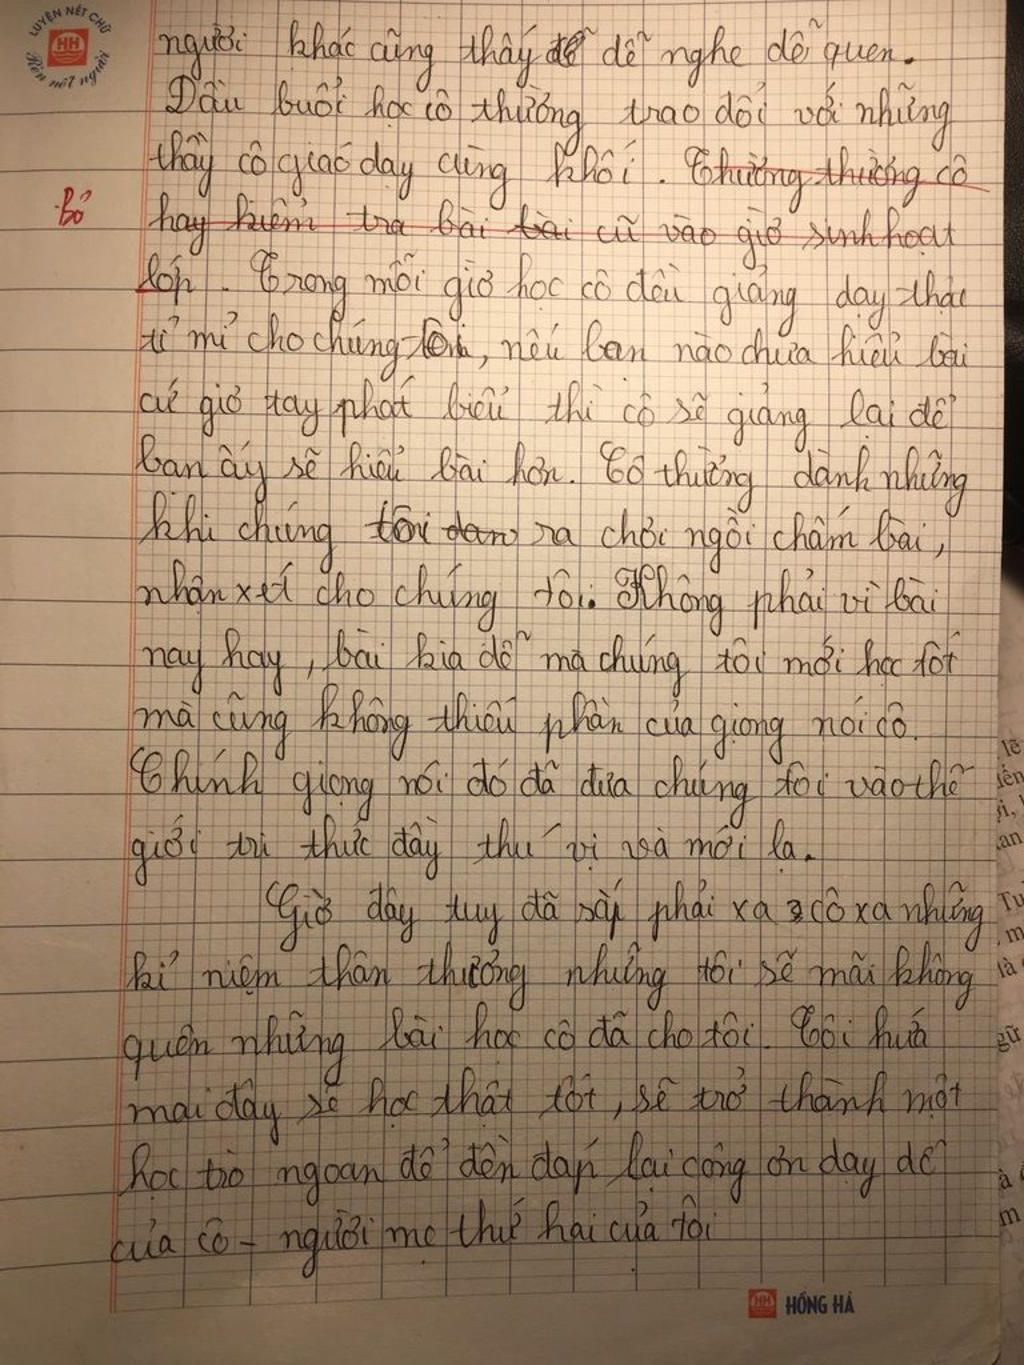 LUYỆN NÉT CHỮ
HH
Rèn nết người
người khác cũng thấy dễ dễ nghe dễ quen.
Đầu buổi học cô thường trao đổi với những
thầy cô giáo dạy cùng khối. Thường thường cô
bỏ
hay kiểm tra bài bài cũ vào giờ sinh hoạt
lớp. Trong mỗi giờ học cô đều giảng dạy thật
tỉ mỉ cho chúng tôi, nếu bạn nào chưa hiểu bài
cứ giơ tay phát biểu thì cô sẽ giảng lại để
bạn ấy sẽ hiểu bài hơn. Cô thường dành những
khi chúng tôi đan ra chơi ngồi chấm bài,
nhận xét cho chúng tôi. Không phải vì bài
này hay, bài kia dễ mà chúng tôi mới học tốt
mà cũng không thiếu phần của giọng nói cô.
Chính giọng nói đó đã đưa chúng tôi vào thế
giới tri thức đầy thú vị và mới lạ.
Giờ đây tuy đã sắp phải xa cô xa những
kỉ niệm thân thương nhưng tôi sẽ mãi không
quên những bài học cô đã cho tôi. Tôi hứa
mai đây sẽ học thật tốt, sẽ trở thành một
học trò ngoan để đền đáp lại công ơn dạy dỗ
của cô – người mẹ thứ hai của tôi
HH HỒNG HÀ